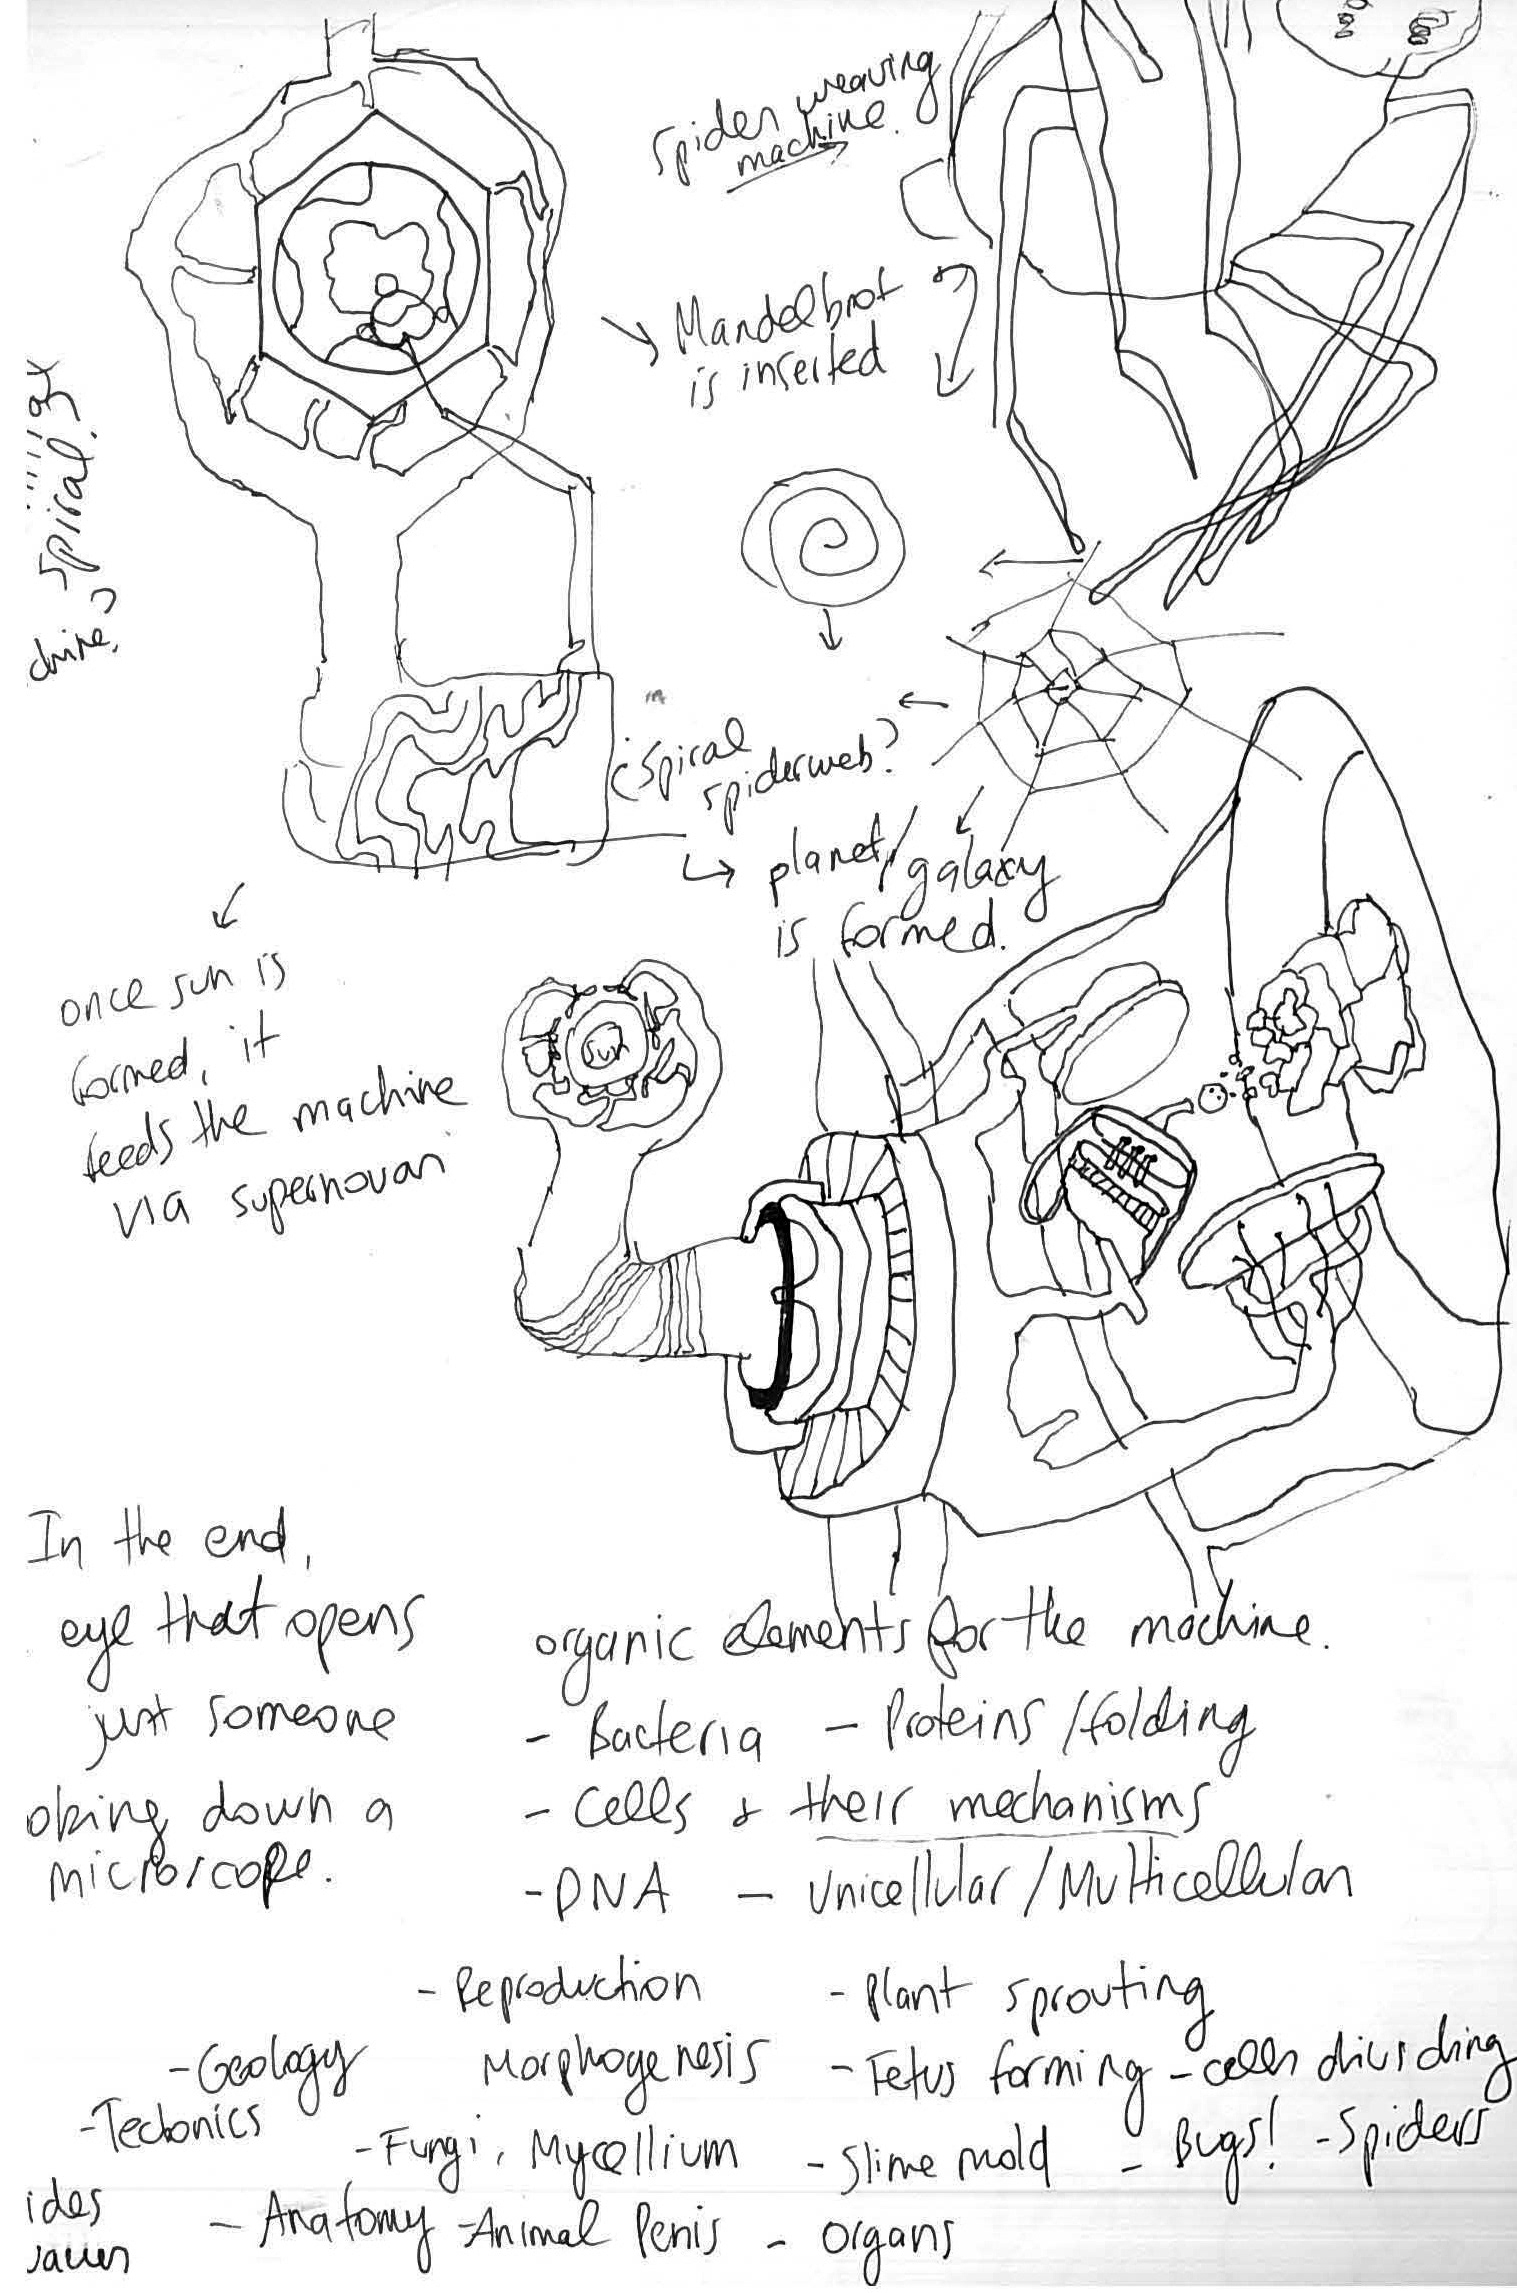 spider weaving
machine.
Mandelbrot
is inserted
spiral.
chine,
(spiral
spiderweb?
planet/
galaxy
is formed.
once sun is
formed, it
feeds the machine
via supernovan
sun
In the end,
eye that opens
just someone
oking down a
microscope.
organic elements for the machine.
- Bacteria - Proteins/folding
- Cells & their mechanisms
- DNA - Unicellular/Multicellular
- Reproduction - Plant sprouting
- Geology Morphogenesis - Fetus forming - cells dividing
- Tectonics - Fungi, Mycellium - Slime mold - Bugs! - Spiders
ides - Anatomy - Animal Penis - organs